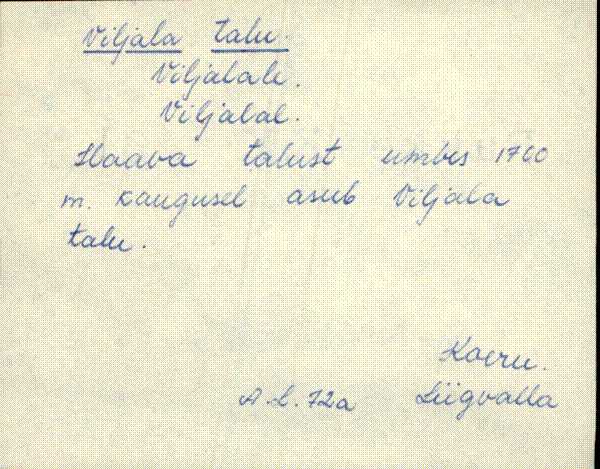 Viljala talu.
Viljalale.
Viljalal.
Haava talust umbes 1700
m. kaugusel asub Viljala
talu.
Koeru.
A.L.72a Liigvalla